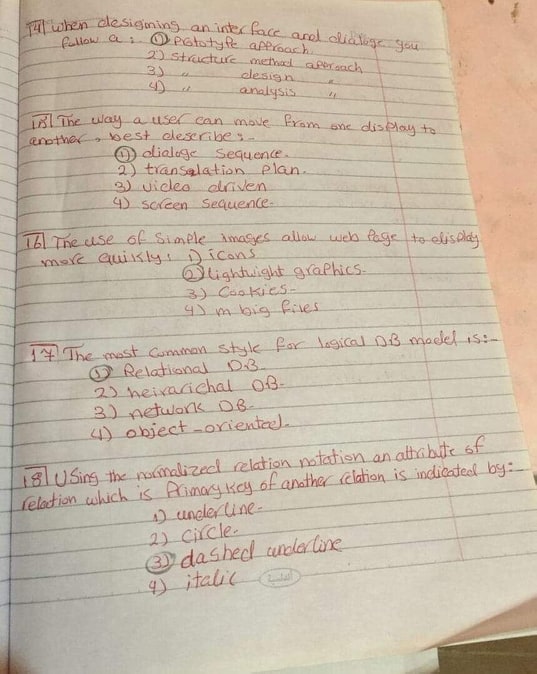 14 when designing an interface and dialoge you
follow a : 1) Pototype approach.
2) structure method approach
3) " design "
4) " analysis "
15 The way a user can move from one display to
another, best describe :-
1) dialoge sequence.
2) translation plan.
3) video driven
4) screen sequence-
16 The use of simple images allow web page to display
more quikly : 1) icons
2) lightwight graphics.
3) Cookies-
4) m big files
17 The most common style for logical DB model is:-
1) Relational DB
2) heirarichal DB-
3) network DB-
4) object-oriented-
18 Using the normalized relation notation an attribute of
relation which is Primary key of another relation is indicated by:-
1) underline-
2) circle-
3) dashed underline
4) italic